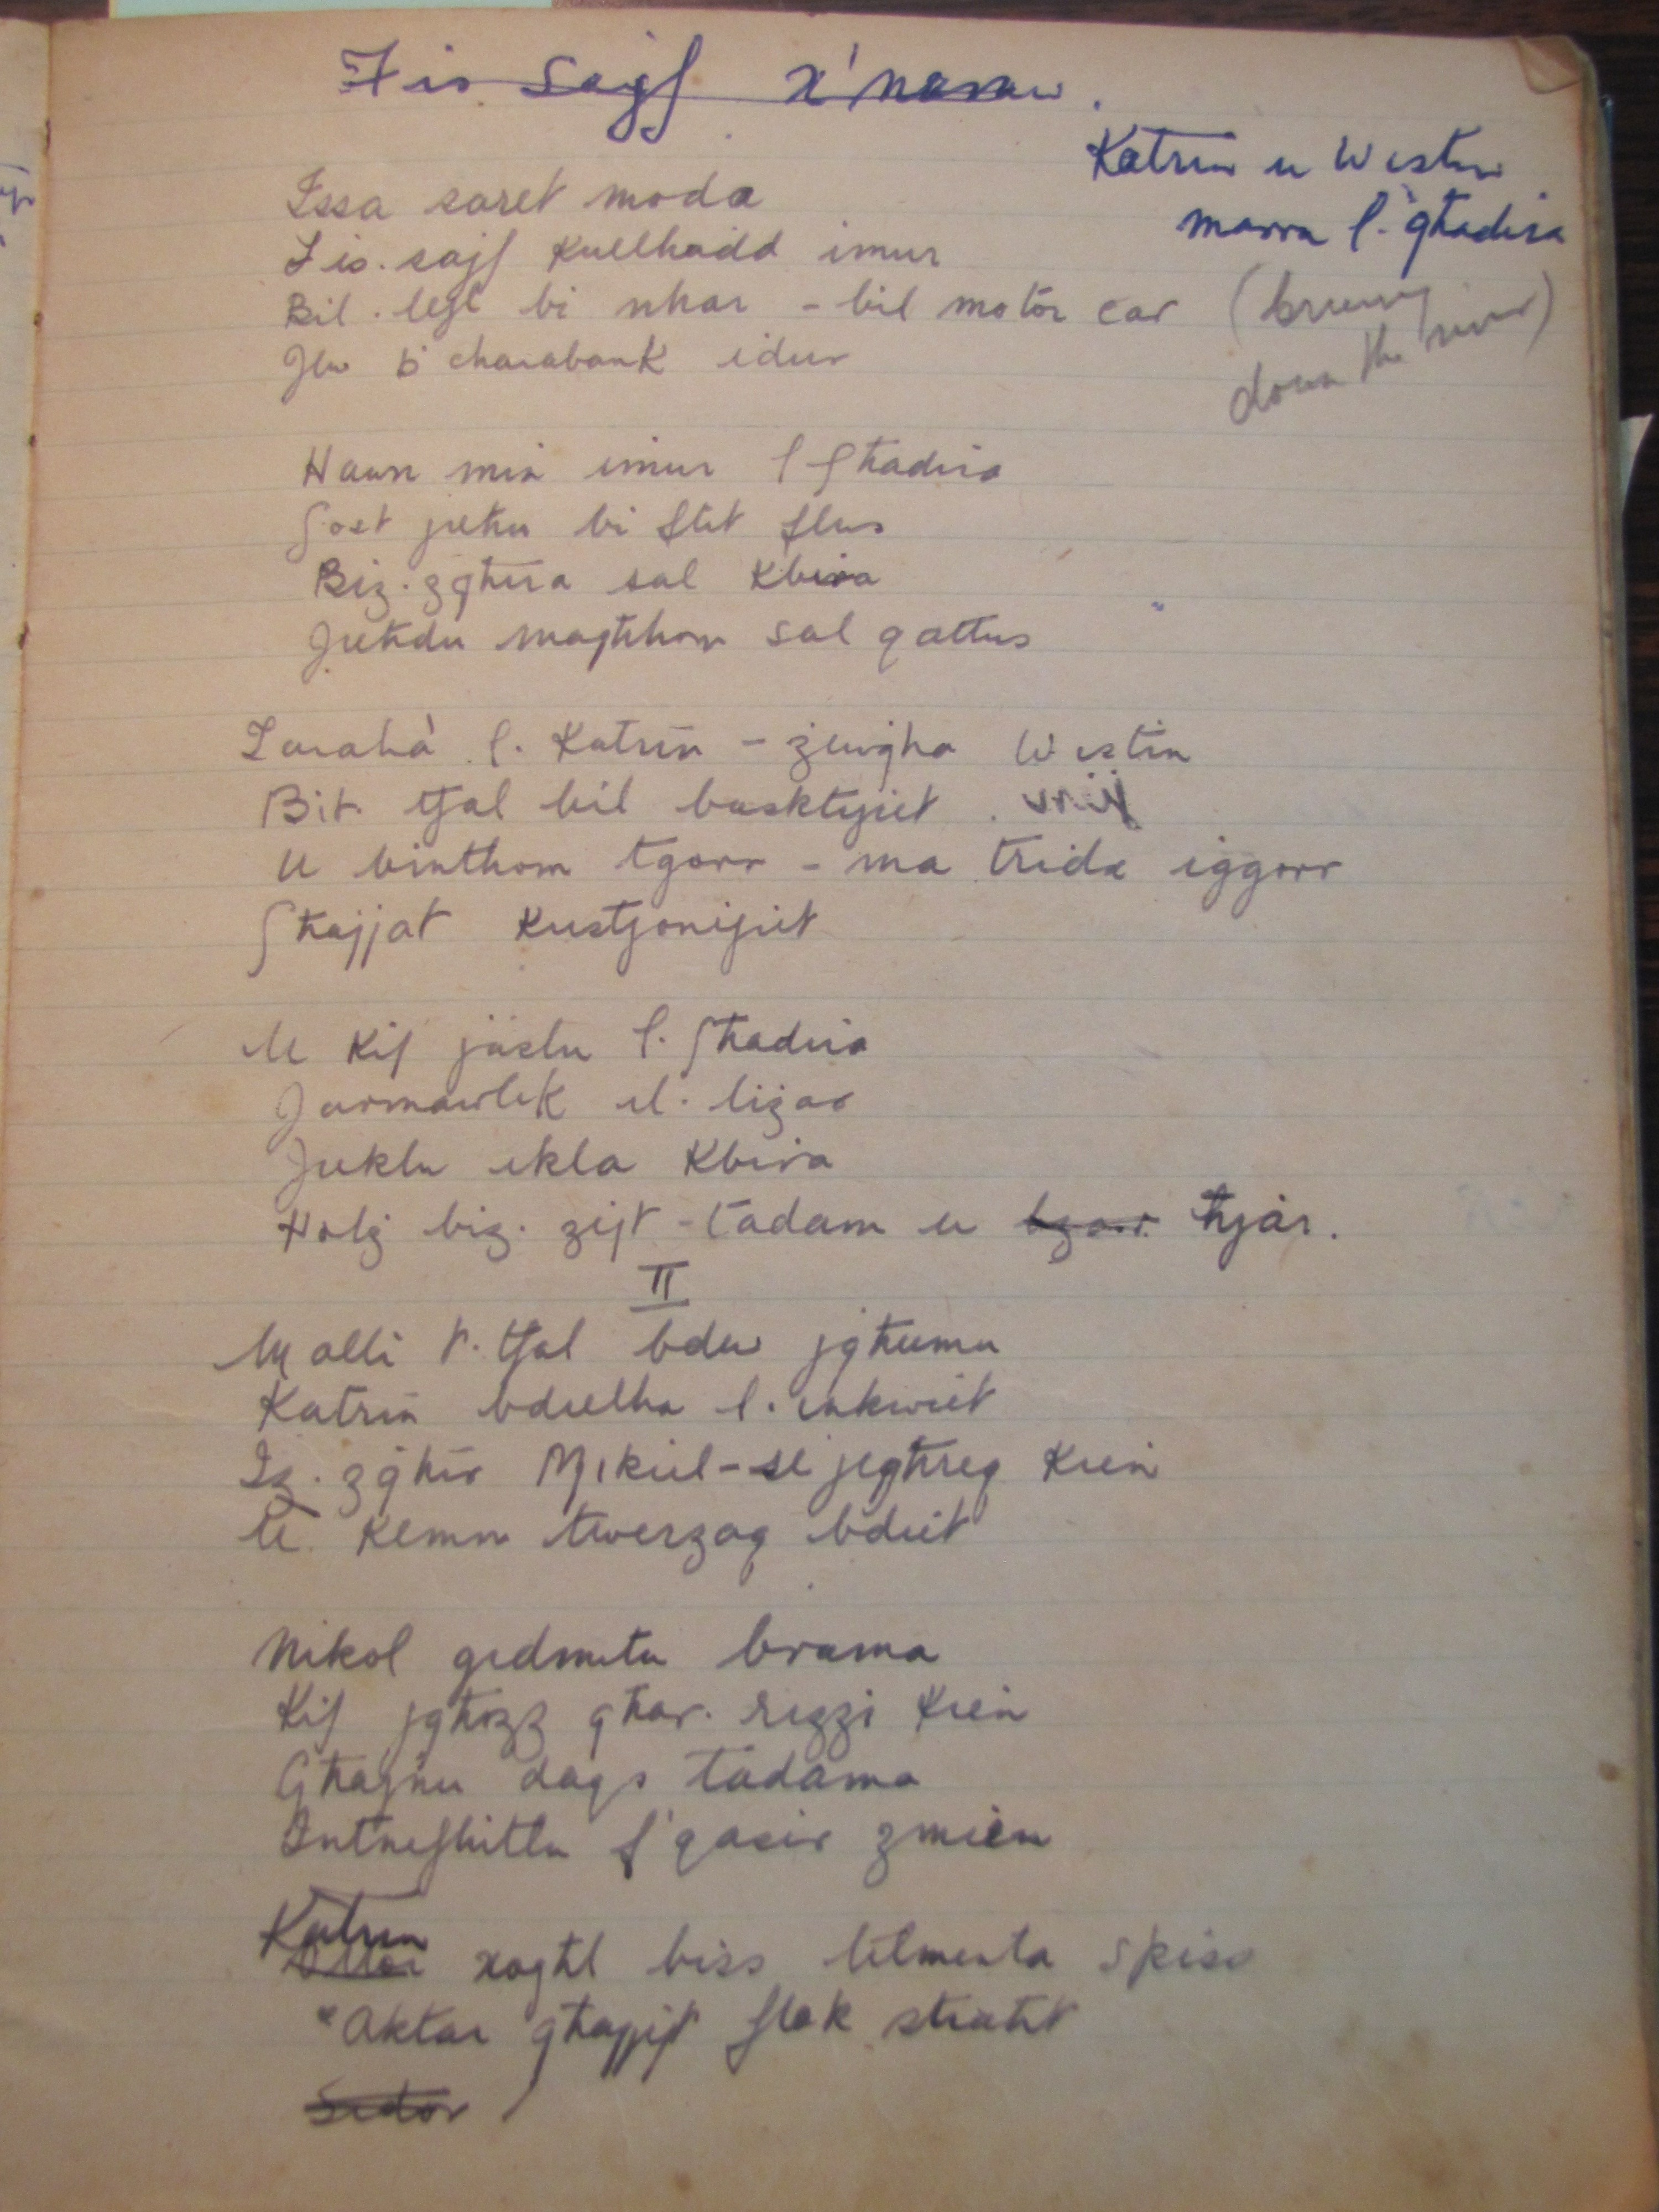 Fis sajf x'naraw.
Katrin u Wistin
marra l-għadira
(bruung
down the river)
Issa saret moda
Fis-sajf kullħadd imur
Bil-lejl bi nhar - bil motor car
Jew b'charabank idur
Hawn min imur l-Għadira
Għax jieħu bi ftit flus
Biż-żgħira sal kbira
Jieħdu magħhom sal qattus
Laraħa l-Katrin - żewġha Wistin
Bit-tfal bil basktijiet
U binthom tgorr - ma tridx iġġorr
Għajjat kustjonijiet
U kif jaslu l-Għadira
Jarmawlek il-liżar
Jieklu ikla kbira
Ħobż biż-żejt - tadam u bżar ħjar.
II
Malli t-tfal bdew jgħumu
Katrin bdielha l-inkwiet
Iż-żgħir Mikiel - se jegħreq kien
U kemm twerżaq bdiet
Nikol gidmitu brama
Kif jgħożż għar-rizzi kien
Għajnu daqs tadama
Intnefħitlu f'qasir żmien
Katrin xogħl biss telmenta spiss
"Aktar għajjejt flok striħt
Sidor